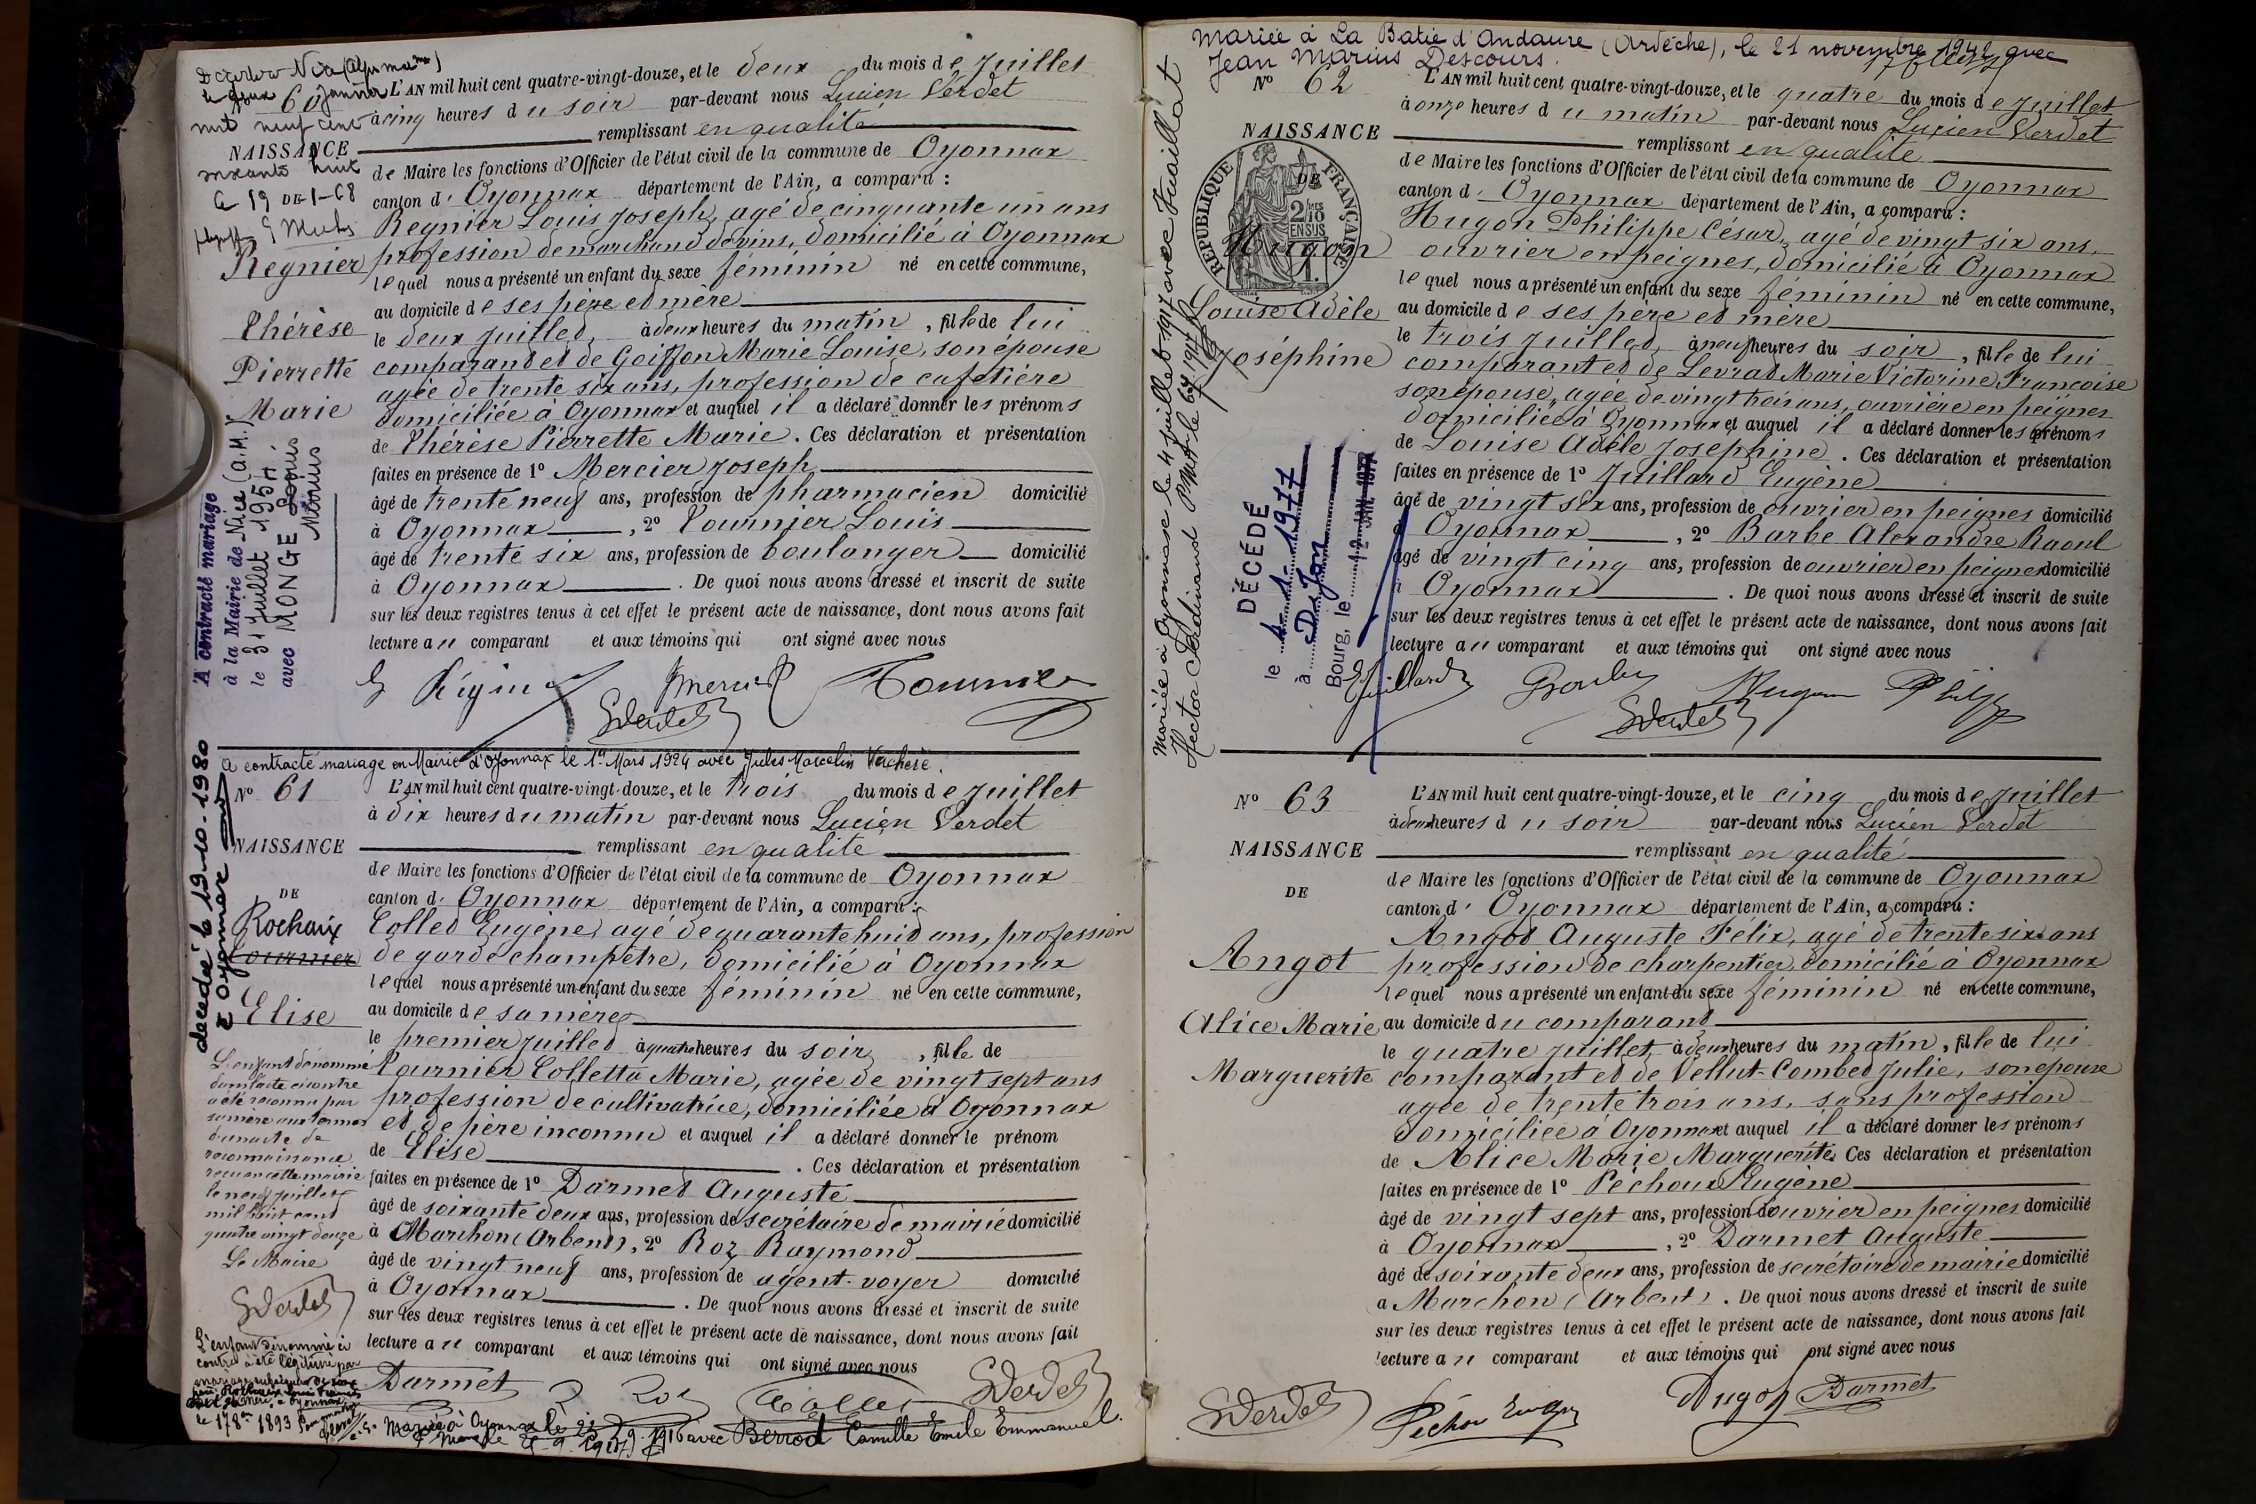 N° 60
L'AN mil huit cent quatre-vingt-douze, et le deux du mois de Juillet
à cinq heures du soir par-devant nous Lucien Verdet
NAISSANCE
remplissant en qualité
de Maire les fonctions d'Officier de l'état civil de la commune de Oyonnax
canton d'Oyonnax département de l'Ain, a comparu :
Regnier Louis Joseph, agé de cinquante un ans
profession de marchand de vins, domicilié à Oyonnax
lequel nous a présenté un enfant du sexe féminin né en cette commune,
au domicile de ses père et mère
le deux Juillet, à deux heures du matin, fille de lui
comparant et de Goiffon Marie Louise, son épouse
agée de trente six ans, profession de cafetière
domiciliée à Oyonnax et auquel il a déclaré donner les prénoms
de Thérèse Pierrette Marie. Ces déclaration et présentation
faites en présence de 1° Mercier Joseph
âgé de trente neuf ans, profession de pharmacien domicilié
à Oyonnax, 2° Tournier Louis
âgé de trente six ans, profession de boulanger domicilié
à Oyonnax. De quoi nous avons dressé et inscrit de suite
sur les deux registres tenus à cet effet le présent acte de naissance, dont nous avons fait
lecture au comparant et aux témoins qui ont signé avec nous
Regnier
Thérèse
Pierrette
Marie
A contracté mariage
à la Mairie de Nice (A.M.)
le 31 Juillet 1954
avec MONGE Louis
Marius
A contracté mariage en Mairie d'Oyonnax le 1er Mars 1924 avec Jules Marcelin Vachère.
N° 61
L'AN mil huit cent quatre-vingt-douze, et le trois du mois de Juillet
à dix heures du matin par-devant nous Lucien Verdet
NAISSANCE
remplissant en qualité
de Maire les fonctions d'Officier de l'état civil de la commune de Oyonnax
DE
canton d'Oyonnax département de l'Ain, a comparu :
Collet Eugène, agé de quarante huit ans, profession
de garde champêtre, domicilié à Oyonnax
lequel nous a présenté un enfant du sexe féminin né en cette commune,
au domicile de sa mère
le premier Juillet à quatre heures du soir, fille de
Tournier Colletta Marie, agée de vingt sept ans
profession de cultivatrice, domiciliée à Oyonnax
et de père inconnu et auquel il a déclaré donner le prénom
de Elise. Ces déclaration et présentation
faites en présence de 1° Darmet Auguste
âgé de soixante deux ans, profession de secrétaire de mairie domicilié
à Marchon (Arbent), 2° Roz Raymond
âgé de vingt neuf ans, profession de agent-voyer domicilié
à Oyonnax. De quoi nous avons dressé et inscrit de suite
sur les deux registres tenus à cet effet le présent acte de naissance, dont nous avons fait
lecture au comparant et aux témoins qui ont signé avec nous
Darmet
Rochaix
Tournier
Elise
décédé le 19-10-1980
à Oyonnax
L'enfant dénommé
dans l'acte ci contre
a été reconnu par
sa mère aux termes
d'un acte de
reconnaissance
reçu en cette mairie
le neuf Juillet
mil huit cent
quatre vingt douze
Le Maire
L'enfant dénommé ci
contre a été légitimé par
Berrod Camille Emile Emmanuel.
Mariée à La Batie d'Andaure (Ardèche), le 21 novembre 1942 avec
Jean Marius Descours.
N° 62
L'AN mil huit cent quatre-vingt-douze, et le quatre du mois de Juillet
à onze heures du matin par-devant nous Lucien Verdet
NAISSANCE
remplissant en qualité
de Maire les fonctions d'Officier de l'état civil de la commune de Oyonnax
DE
canton d'Oyonnax département de l'Ain, a comparu :
Hugon Philippe César, agé de vingt six ans,
ouvrier en peignes, domicilié à Oyonnax
lequel nous a présenté un enfant du sexe féminin né en cette commune,
au domicile de ses père et mère
le trois Juillet, à neuf heures du soir, fille de lui
comparant et de Levrat Marie Victorine Françoise
son épouse, agée de vingt trois ans, ouvrière en peignes
domiciliée à Oyonnax et auquel il a déclaré donner les prénoms
de Louise Adèle Joséphine. Ces déclaration et présentation
faites en présence de 1° Juillard Eugène
âgé de vingt six ans, profession de ouvrier en peignes domicilié
à Oyonnax, 2° Barbe Alexandre Raoul
âgé de vingt cinq ans, profession de ouvrier en peignes domicilié
à Oyonnax. De quoi nous avons dressé et inscrit de suite
sur les deux registres tenus à cet effet le présent acte de naissance, dont nous avons fait
lecture au comparant et aux témoins qui ont signé avec nous
RÉPUBLIQUE FRANÇAISE
2/10
EN SUS
Hugon
Louise Adèle
Joséphine
DÉCÉDÉ
le 4-1-1977
à Dijon
Bourg, le
N° 63
L'AN mil huit cent quatre-vingt-douze, et le cinq du mois de Juillet
à deux heures du soir par-devant nous Lucien Verdet
NAISSANCE
remplissant en qualité
de Maire les fonctions d'Officier de l'état civil de la commune de Oyonnax
DE
canton d'Oyonnax département de l'Ain, a comparu :
Angot Auguste Félix, agé de trente six ans
profession de charpentier, domicilié à Oyonnax
lequel nous a présenté un enfant du sexe féminin né en cette commune,
au domicile du comparant
le quatre Juillet, à deux heures du matin, fille de lui
comparant et de Vellut-Combet Julie, son épouse
agée de trente trois ans, sans profession
domiciliée à Oyonnax et auquel il a déclaré donner les prénoms
de Alice Marie Marguerite. Ces déclaration et présentation
faites en présence de 1° Péchoux Eugène
âgé de vingt sept ans, profession d'ouvrier en peignes domicilié
à Oyonnax, 2° Darmet Auguste
âgé de soixante deux ans, profession de secrétaire de mairie domicilié
à Marchon (Arbent). De quoi nous avons dressé et inscrit de suite
sur les deux registres tenus à cet effet le présent acte de naissance, dont nous avons fait
lecture au comparant et aux témoins qui ont signé avec nous
Angot
Alice Marie
Marguerite
Darmet